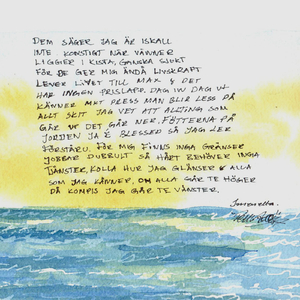 DEM SÄGER JAG ÄR ISKALL
INTE KONSTIGT NÄR VÄNNER
LIGGER I KISTA, GANSKA SJUKT
FÖR DE GER MIG ÄNDÅ LIVSKRAFT
LEVER LIVET TILL MAX & DET
HAR INGEN PRISLAPP. DAG IN DAG UT
KÄNNER MKT PRESS MAN BLIR LESS PÅ
ALLT SKIT JAG VET ATT ALLTING SOM
GÅR UT DET GÅR NER, FÖTTERNA PÅ
JORDEN JAG É BLESSED SÅ JAG LER
FÖRSTÅRU. FÖR MIG FINNS INGA GRÄNSER
JOBBAR DUBBULT SÅ HÅRT BEHÖVER INGA
TJÄNSTER, KOLLA HUR JAG GLÄNSER & ALLA
SOM JAG KÄNNER, OM ALLA GÅR TE HÖGER
DÅ KOMPIS JAG GÅR TE VÄNSTER.